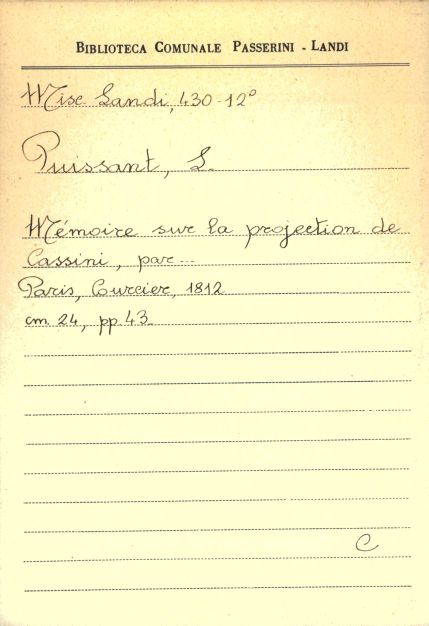 BIBLIOTECA COMUNALE PASSERINI - LANDI
Misc Landi, 430-12°
Puissant, L.
Mémoire sur la projection de
Cassini, par...
Paris, Courcier, 1812
cm. 24, pp. 43.
C